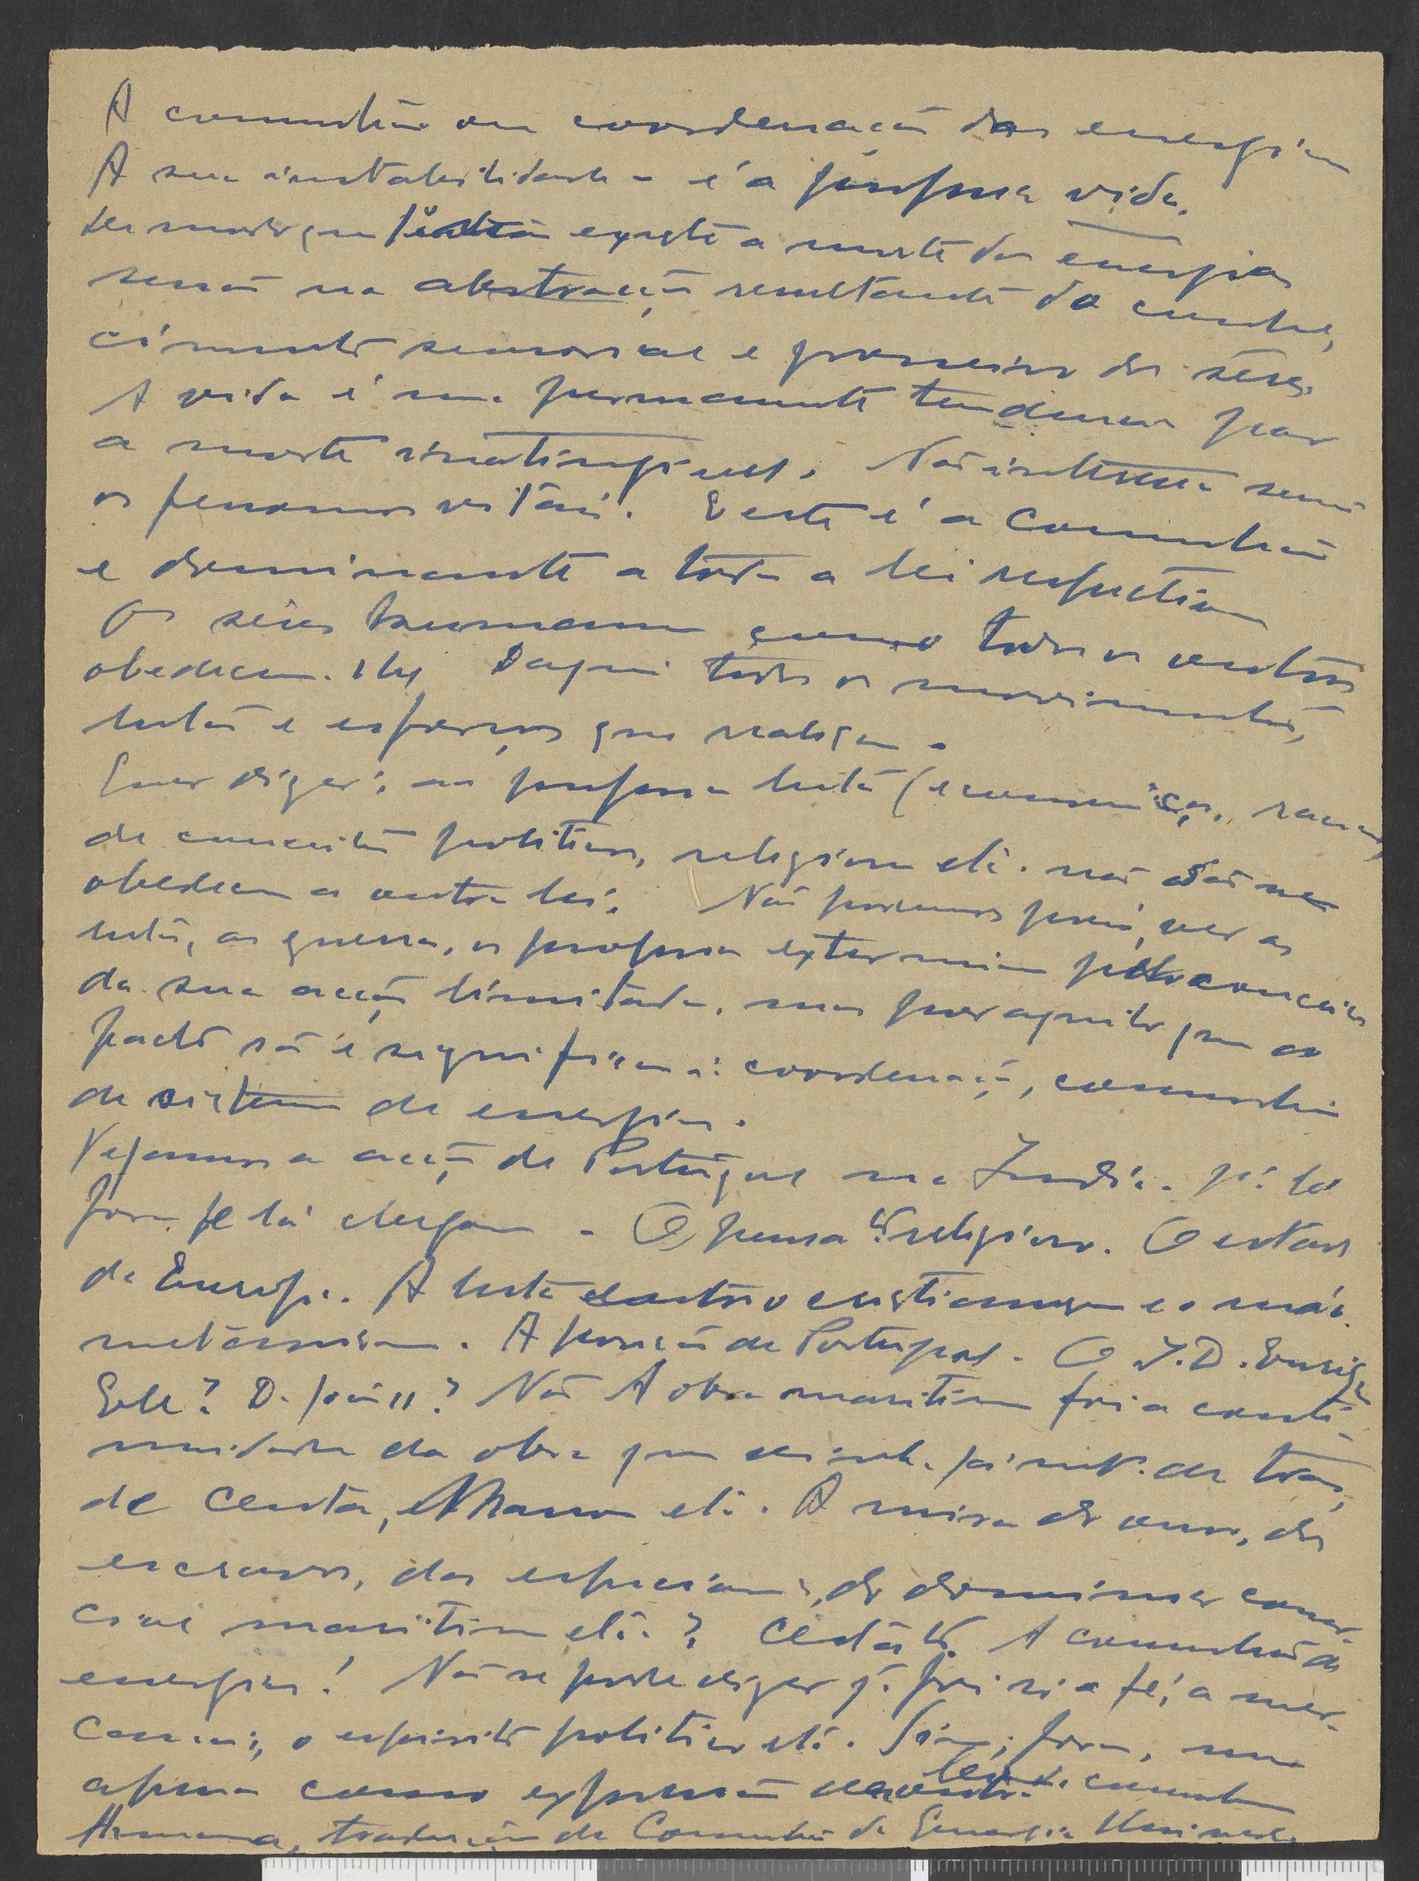 A comunhão ou coordenação das energias
A sua instabilidade - é a própria vida.
de modo que existe a morte da energia
senão na abstracção resultante do conhe,
cimento sensorial e grosseiro dos sêres.
A vida é uma permanente tendencia para
a morte inatingivel. Não interessa senão
os fenomenos vitais. E este é a Comunhão
e dominante a toda a lei respectiva
Os sêres humanos como todos os outros
obedecem-lhe Daqui todos os movimentos,
lutas e esforços que realizam.
Quer dizer: as proprias lutas (economicas, raciais,
de conceitos politicos, religiosos etc. não são nem
obedecem a outra lei. Não podemos pois, ver as
lutas, as guerras, os proprios exterminios pelo conceito
da sua acção limitada, mas por aquilo que de
facto são e significam: coordenação, comunhão
de sistemas de energias.
Vejamos a acção de Portugal na India. Já la
foram e lá chegam - O pensar religioso. O estado
da Europa. A luta contra o cristianismo e o mao-
metanismo. A posição de Portugal. O I. D. Henrique
Ele? D. João II? Não A obra maritima foi a conti-
nuidade da obra que vinha já mt. de tras,
de Ceuta, etc. A mira do ouro, dos
escravos, das especiarias, do dominio comer-
cial maritimo etc.? Está lá. A comunhão de
energias! Não se pode dizer q. foi só a fé, a mer-
cancia, o espirito politico etc. Sim, foram, mas
apenas como expressão da comunhão
Humana, tradução da Comunhão da Energia Universal